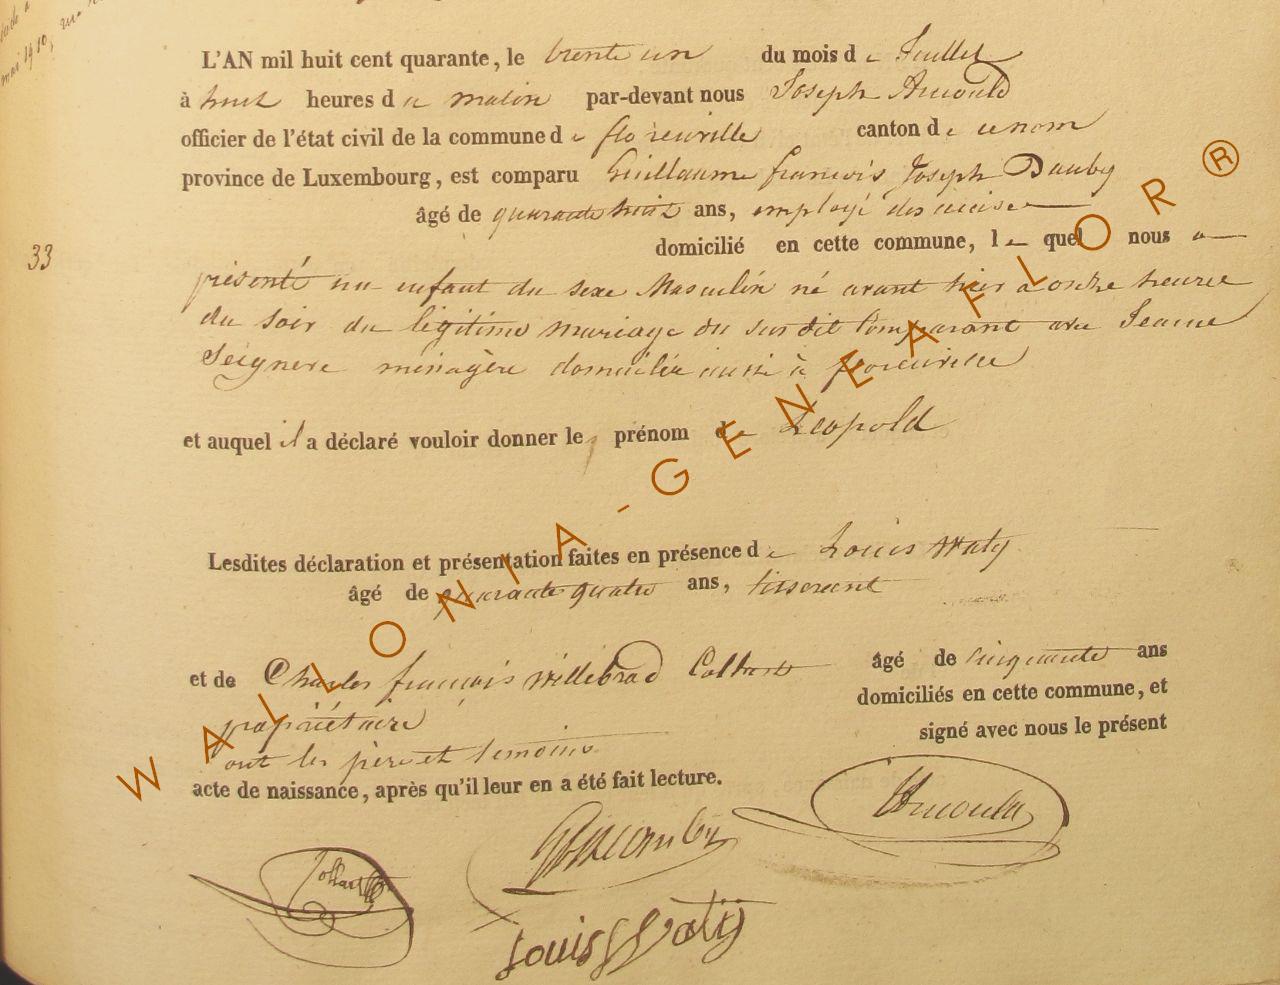 mai 1910,
L'AN mil huit cent quarante, le trente un du mois de Juillet
à huit heures du matin par-devant nous Joseph Arnould
officier de l'état civil de la commune de florenville canton de ce nom
province de Luxembourg, est comparu Guillaume françois Joseph Dauby
âgé de quarante huit ans, employé des accises
domicilié en cette commune, lequel nous a
33
présenté un enfant du sexe Masculin né avant hier à onze heures
du soir du légitime mariage du sus dit Comparant avec Jeanne
Seignere ménagère domiciliée aussi à florenville
et auquel il a déclaré vouloir donner le prénom de Léopold
Lesdites déclaration et présentation faites en présence de Louis Waty
âgé de quarante quatre ans, tisserant
et de Charles françois Willebrod Collard âgé de cinquante ans
propriétaire domiciliés en cette commune, et
ont les père et temoins signé avec nous le présent
acte de naissance, après qu'il leur en a été fait lecture.
Arnould
Collard
Louis Waty
WALLONIA-GENEAFLOR ®